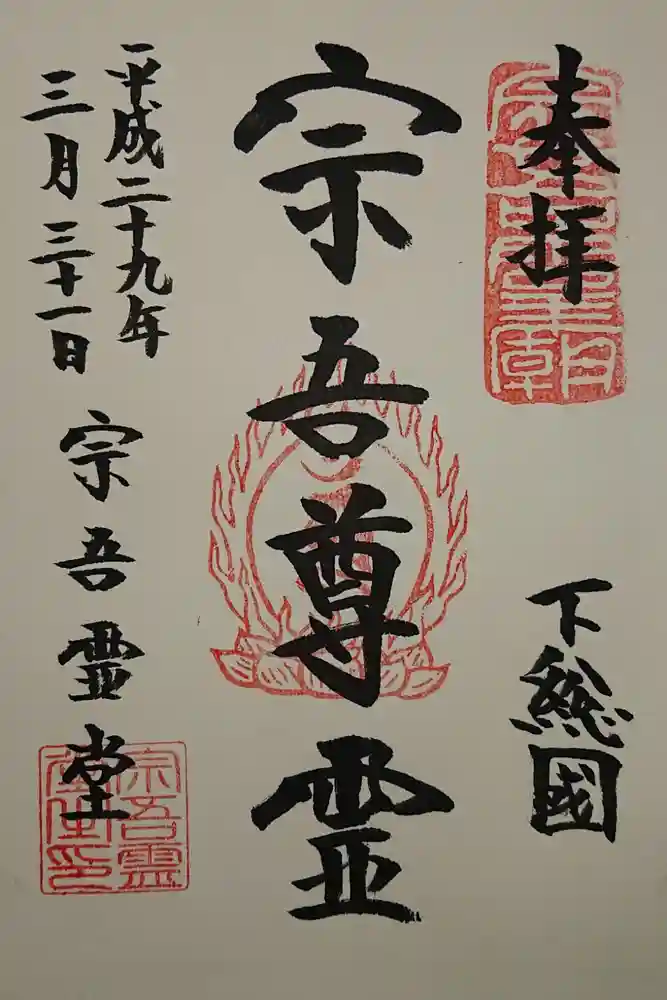 奉拝
下総國
宗吾尊霊
平成二十九年
三月三十一日
宗吾霊堂
宗吾霊
堂主印